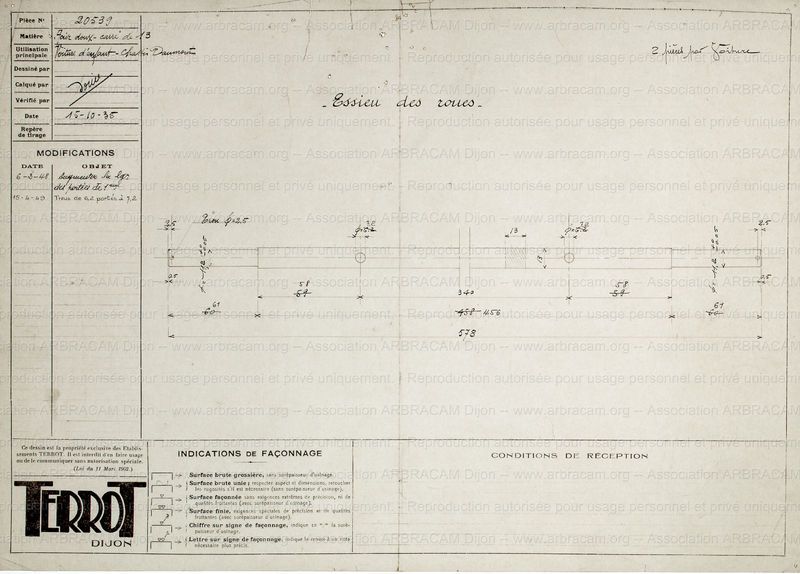 Pièce N° 20539
Matière Fer doux - carré de 13
Utilisation principale Voiture d'enfant - Chassis Daumont
Dessiné par
Calqué par
Vérifié par
Date 15-10-35
Repère de tirage
MODIFICATIONS
DATE OBJET
6-3-48 Augmenter la lgr
des portées de 1 m/m
15-4-49 Trous de 6,2 portés à 7,2
2 pièces par voiture
- Essieu des roues -
2,5 Trou φ=2.5 7,2 13 7,2 2,5
0,5 13 0,5
58 340 58
59 59
61 458 456 61
60 60
578
Ce dessin est la propriété exclusive des Etablis-
sements TERROT. Il est interdit d'en faire usage
ou de le communiquer sans autorisation spéciale.
(Loi du 11 Mars 1902.)
TERROT
DIJON
INDICATIONS DE FAÇONNAGE
Surface brute grossière, sans surépaisseur d'usinage.
Surface brute unie ; respecter aspect et dimensions, retoucher
les rugosités s'il est nécessaire (sans surépaisseur d'usinage).
Surface façonnée sans exigences extrêmes de précision, ni de
qualités frottantes (avec surépaisseur d'usinage).
Surface finie, exigences spéciales de précision et de qualités
frottantes (avec surépaisseur d'usinage).
Chiffre sur signe de façonnage, indique en "/" la suré-
paisseur d'usinage.
Lettre sur signe de façonnage, indique le renvoi à une note
nécessaire plus précise.
CONDITIONS DE RÉCEPTION
Reproduction autorisée pour usage personnel et privé uniquement
www.arbracam.org -- Association ARBRACAM Dijon